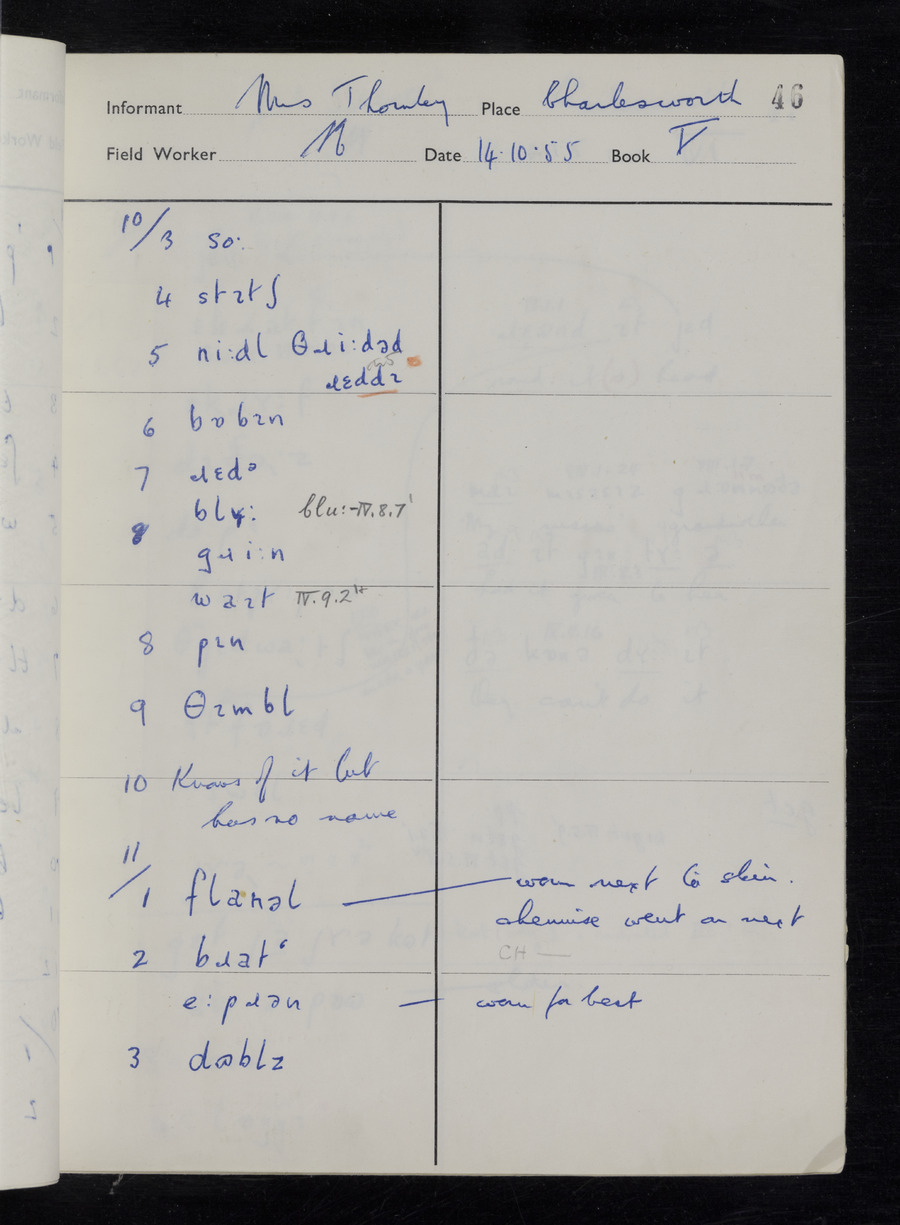 Informant Mrs Thornley Place Charlesworth 46
Field Worker Date 14·10·55 Book V
10/3 so:
4 stɪtʃ
5 ni:dl θɹi:dəd
ɹɛddɪ
6 bɒbɪn
7 ɹɛdᵊ
blʏ: blu:-IV.8.7
8 gɹi:n
waɪt IV.9.2
8 pɪn
9 θɪmbl
10 Knows of it but
has no name
11/1 flanəl — worn next to skin.
chemise went on next
2 bɹatʻ CH —
e:pɹən — worn for best
3 dɷblz